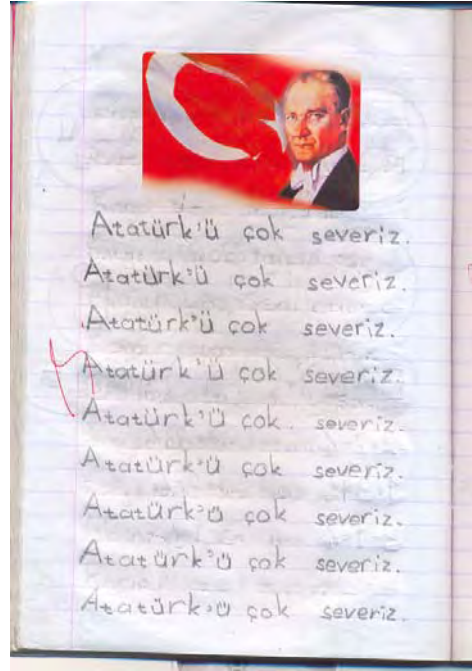 Atatürk'ü çok severiz.
Atatürk'ü çok severiz.
Atatürk'ü çok severiz.
Atatürk'ü çok severiz.
Atatürk'ü çok. severiz.
Atatürk'ü çok severiz.
Atatürk'ü çok severiz.
Atatürk'ü çok severiz.
Atatürk'ü çok severiz.